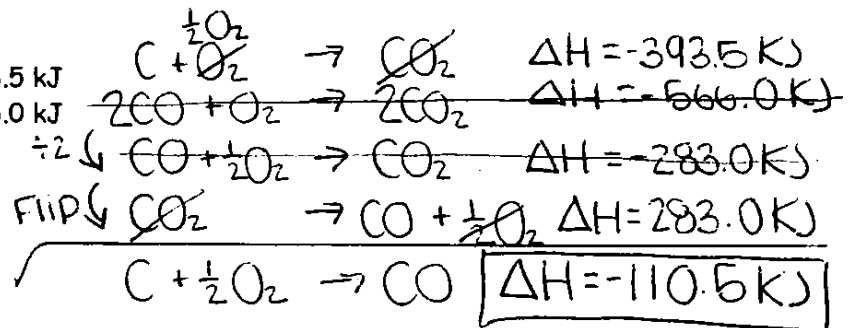 ½O₂
C + O₂ → CO₂ ΔH = -393.5 KJ
.5 kJ
2CO + O₂ → 2CO₂ ΔH = -566.0 KJ
.0 kJ
÷2 CO + ½O₂ → CO₂ ΔH = -283.0 KJ
FliP CO₂ → CO + ½O₂ ΔH = 283.0 KJ
C + ½O₂ → CO ΔH = -110.5 KJ